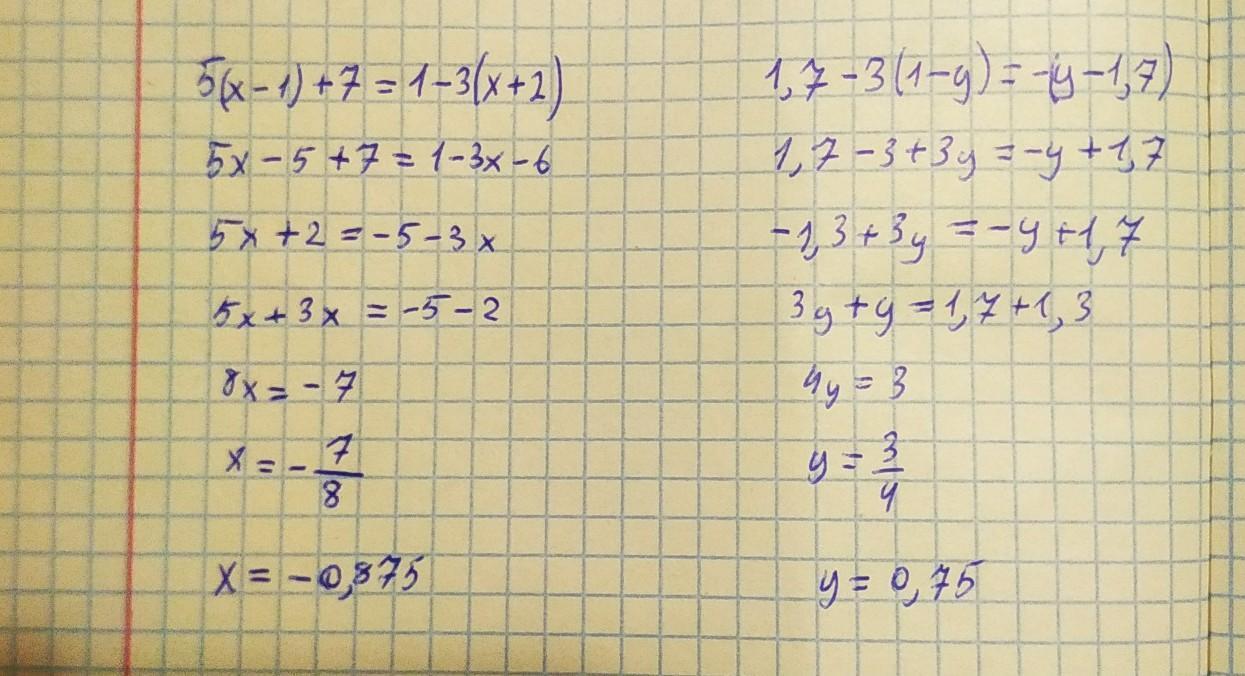 5(x-1)+7=1-3(x+2)
5x-5+7=1-3x-6
5x+2=-5-3x
5x+3x=-5-2
8x=-7
x=-7/8
x=-0,875
1,7-3(1-y)=-(y-1,7)
1,7-3+3y=-y+1,7
-1,3+3y=-y+1,7
3y+y=1,7+1,3
4y=3
y=3/4
y=0,75